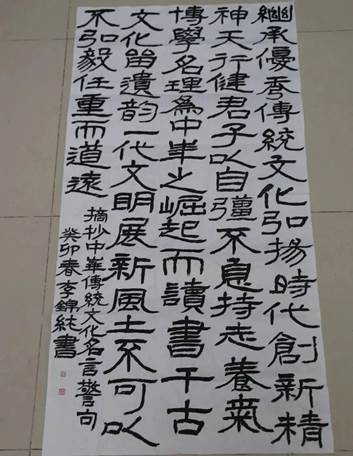 繼承優秀傳統文化弘揚時代創新精
神天行健君子以自彊不息持志養氣
博學名理爲中華之崛起而讀書千古
文化留遺韵一代文明展新風士不可以
不弘毅任重而道遠
摘抄中華傳統文化名言警句
癸卯春李錦純書